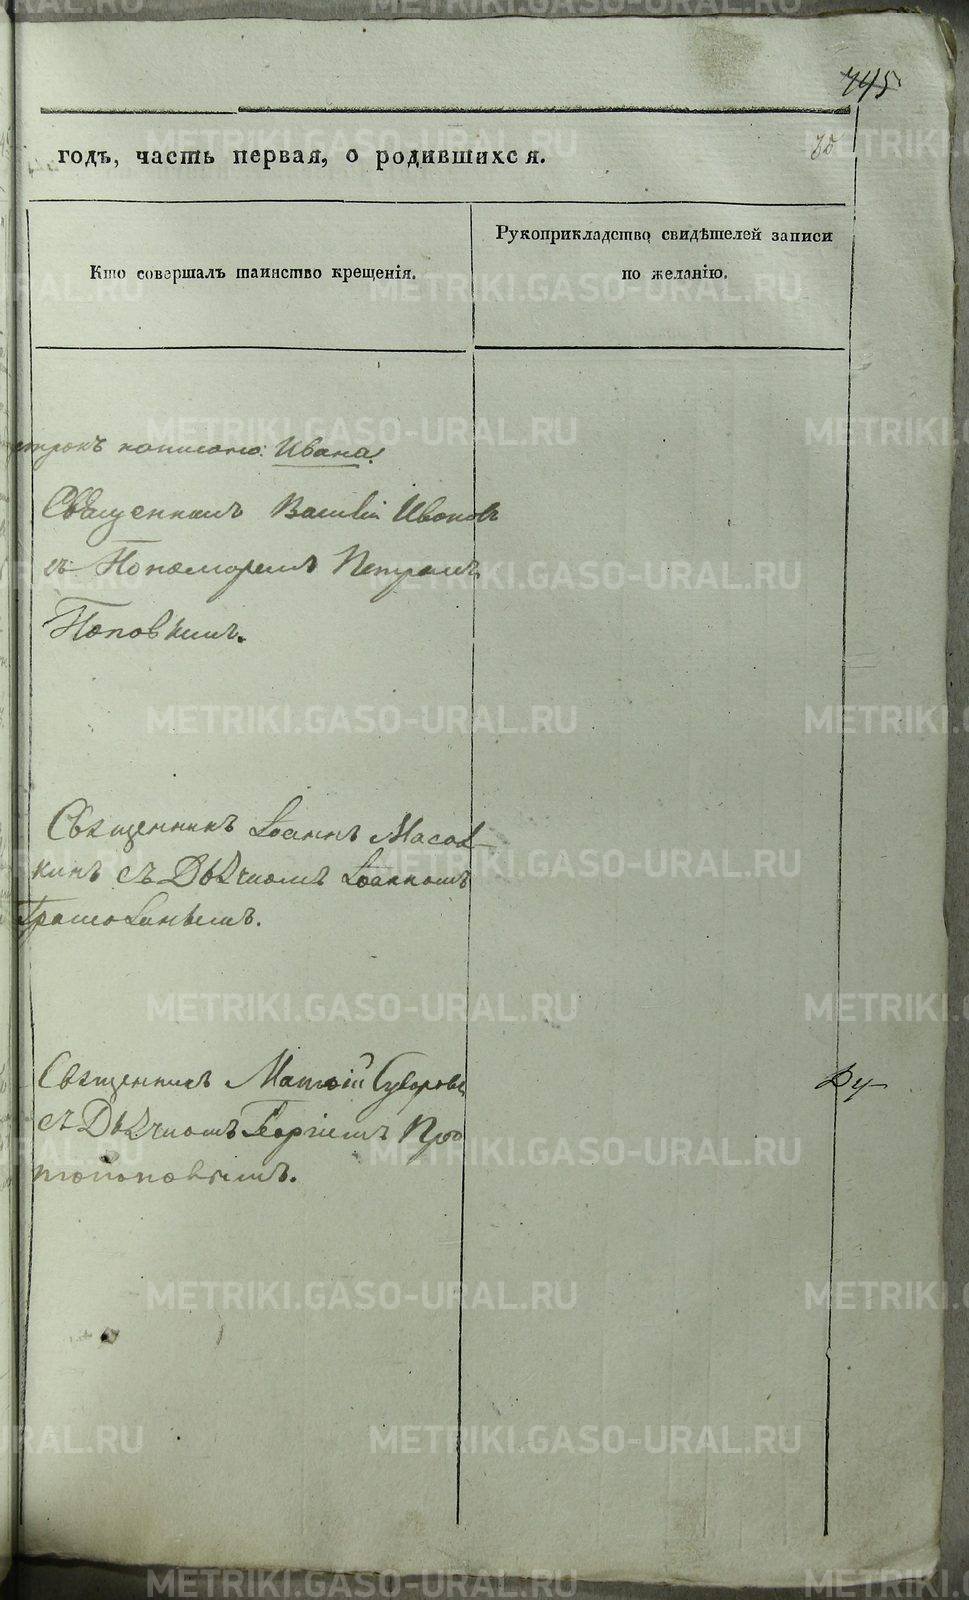 745
годъ, часть первая, о родившихся.
Кто совершалъ таинство крещенія.
Рукоприкладство свидѣтелей записи
по желанію.
строкъ написано: Ивана.
Священникъ Василій Ивановъ
съ Пономаремъ Петромъ
Поповымъ.
Священникъ Іоаннъ Масов
кинъ съ Дьячкомъ Іоанномъ
Священникъ Матѳій Суворовъ
съ Дьячкомъ Георгіемъ Про
топоповымъ.
METRIKI.GASO-URAL.RU